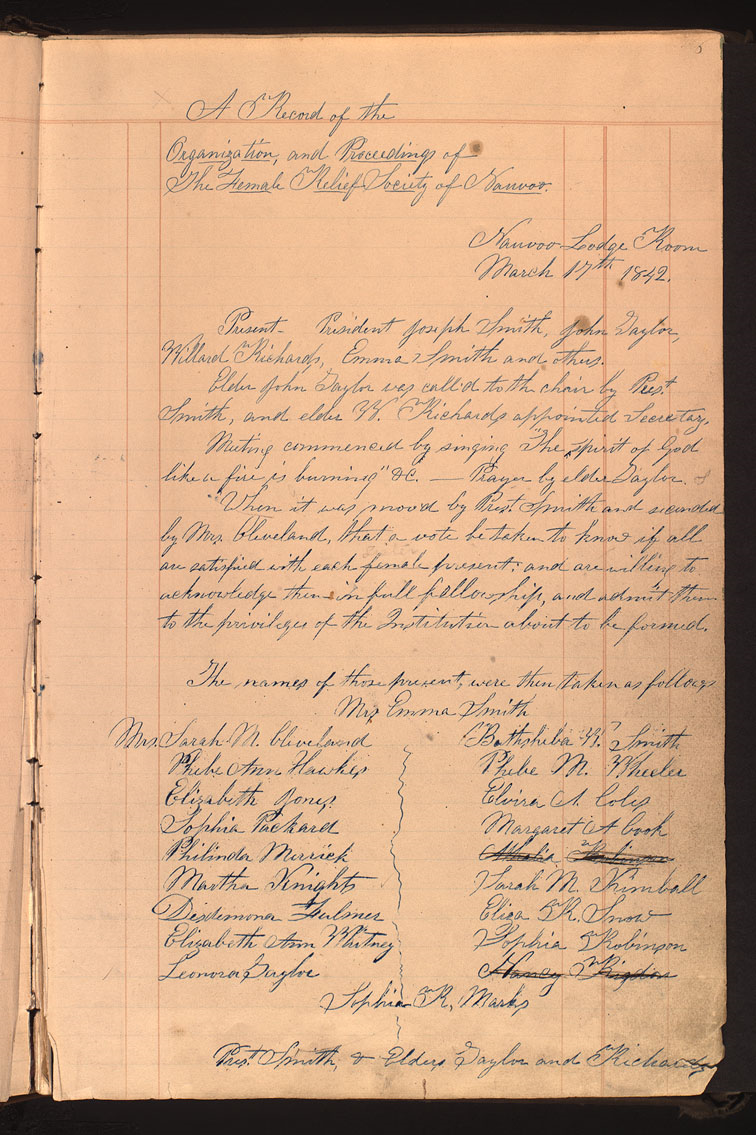 A Record of the
Organization, and Proceedings of
The Female Relief Society of Nauvoo.
Nauvoo Lodge Room
March 17th 1842.
Present- President Joseph Smith, John Taylor,
Willard Richards, Emma Smith and others.
Elder John Taylor was call'd to th chair by Prest
Smith, and elder W. Richards appointed Secretary.
Meeting commenced by singing "The spirit of God
like a fire is burning" &c. — Prayer by elder Taylor.
When it was moved by Prest. Smith and seconded
by Mrs. Cleveland, that a vote be taken to know if all
are satisfied with each female present; and are willing to
acknowledge them in full fellowship, and admit them
to the privileges of the Institution about to be formed.
The names of those present, were then taken as follows
Mrs Emma Smith
Mrs. Sarah M. Cleveland Bathsheba W. Smith
Phebe Ann Hawkes Phebe M. Wheeler
Elizabeth Jones Elvira A. Coles
Sophia Packard Margaret A Cook
Philinda Merrick Athalia Robinson
Martha Knights Sarah M. Kimball
Desdemona Fulmer Eliza R. Snow
Elizabeth Ann Whitney Sophia Robinson
Leonora Taylor Nancy Rigdon
Sophia R. Marks
Prest. Smith, & Elders Taylor and Richards